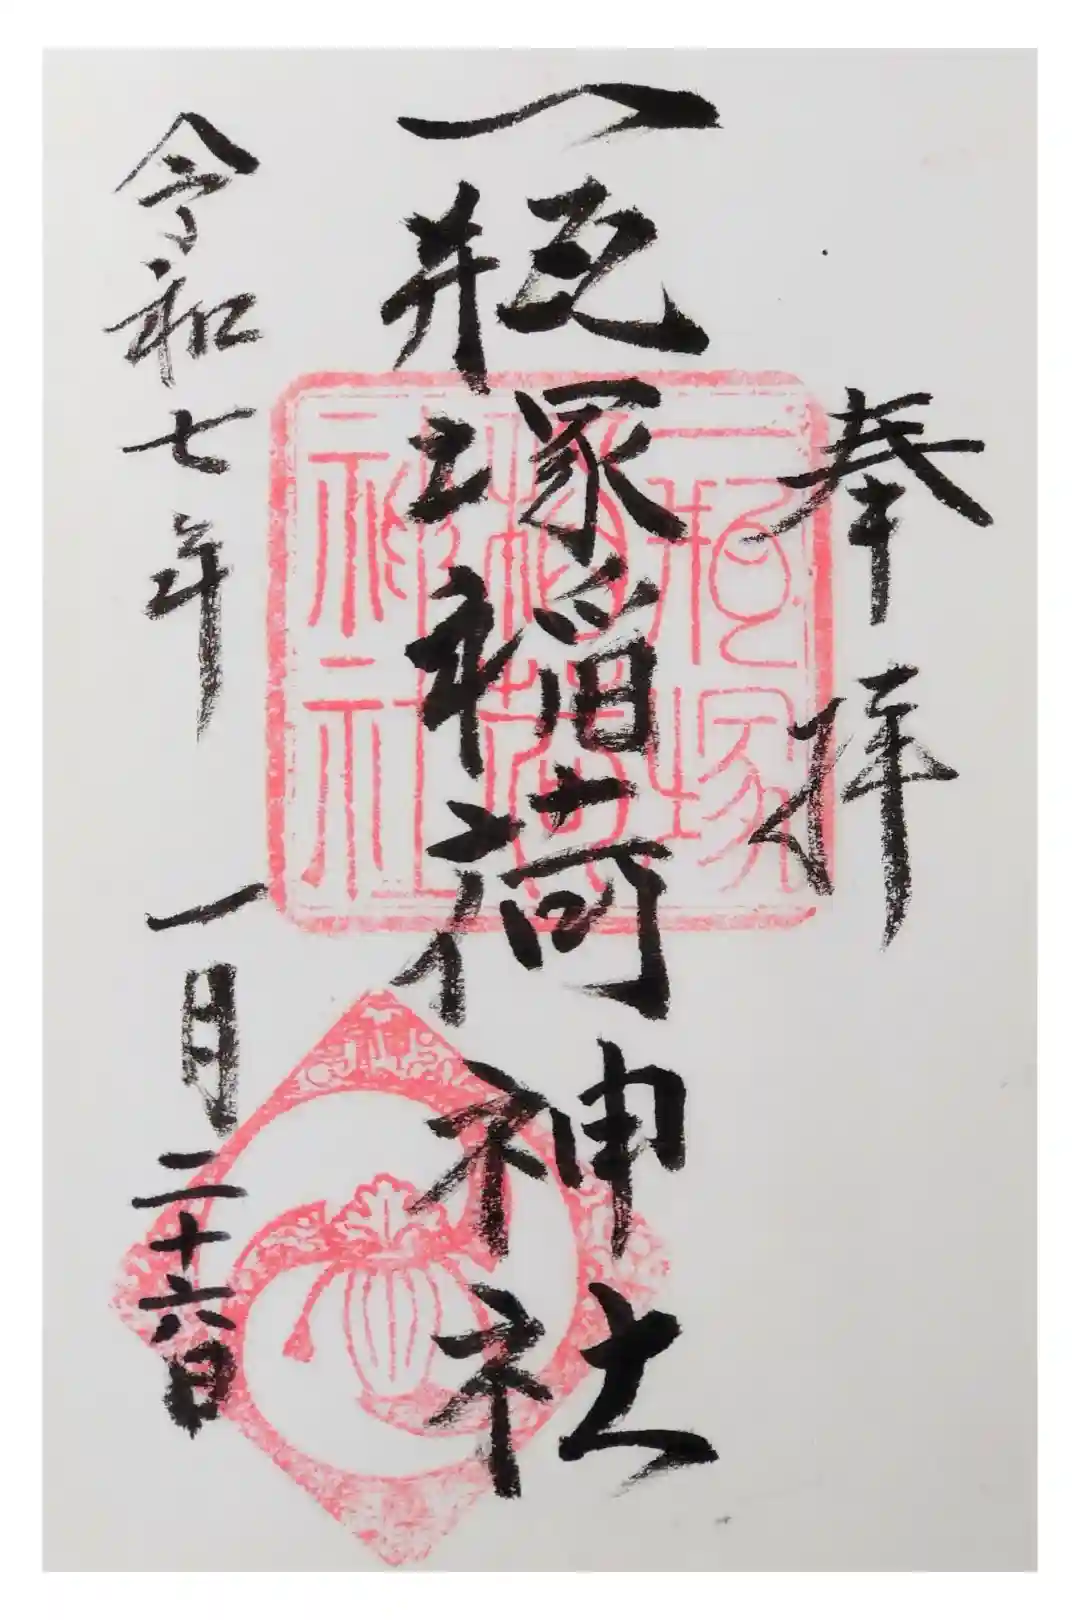 奉拝
一瓶塚稲荷神社
令和七年一月二十六日
一瓶塚
稲荷
神社